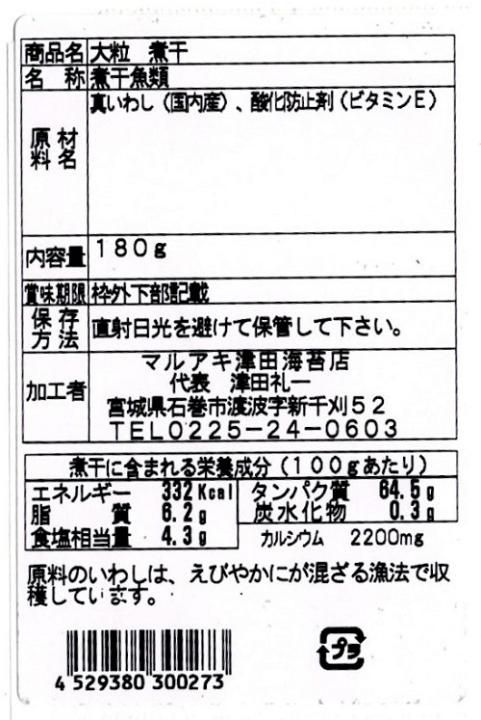 商品名 大粒 煮干
名称 煮干魚類
原材料名 真いわし(国内産)、酸化防止剤(ビタミンE)
内容量 180g
賞味期限 枠外下部記載
保存方法 直射日光を避けて保管して下さい。
加工者 マルアキ津田海苔店
代表 津田礼一
宮城県石巻市渡波字新千刈52
TEL0225-24-0603
煮干に含まれる栄養成分(100gあたり)
エネルギー 332Kcal タンパク質 64.5g
脂質 6.2g 炭水化物 0.3g
食塩相当量 4.3g カルシウム 2200mg
原料のいわしは、えびやかにが混ざる漁法で収
穫しています。
プラ
4 529380 300273